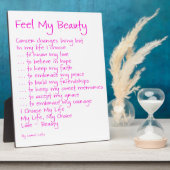 Feel My Beauty
Cancer changes being lost
In my life I choose
... to know my love
... to believe in hope
... to keep my faith
... to embrace my peace
... to build my friendships
... to keep my sweet memories
... to accept my grace
... to embrace my courage
I Choose My Life
My Life, My Choice
Love - Beauty